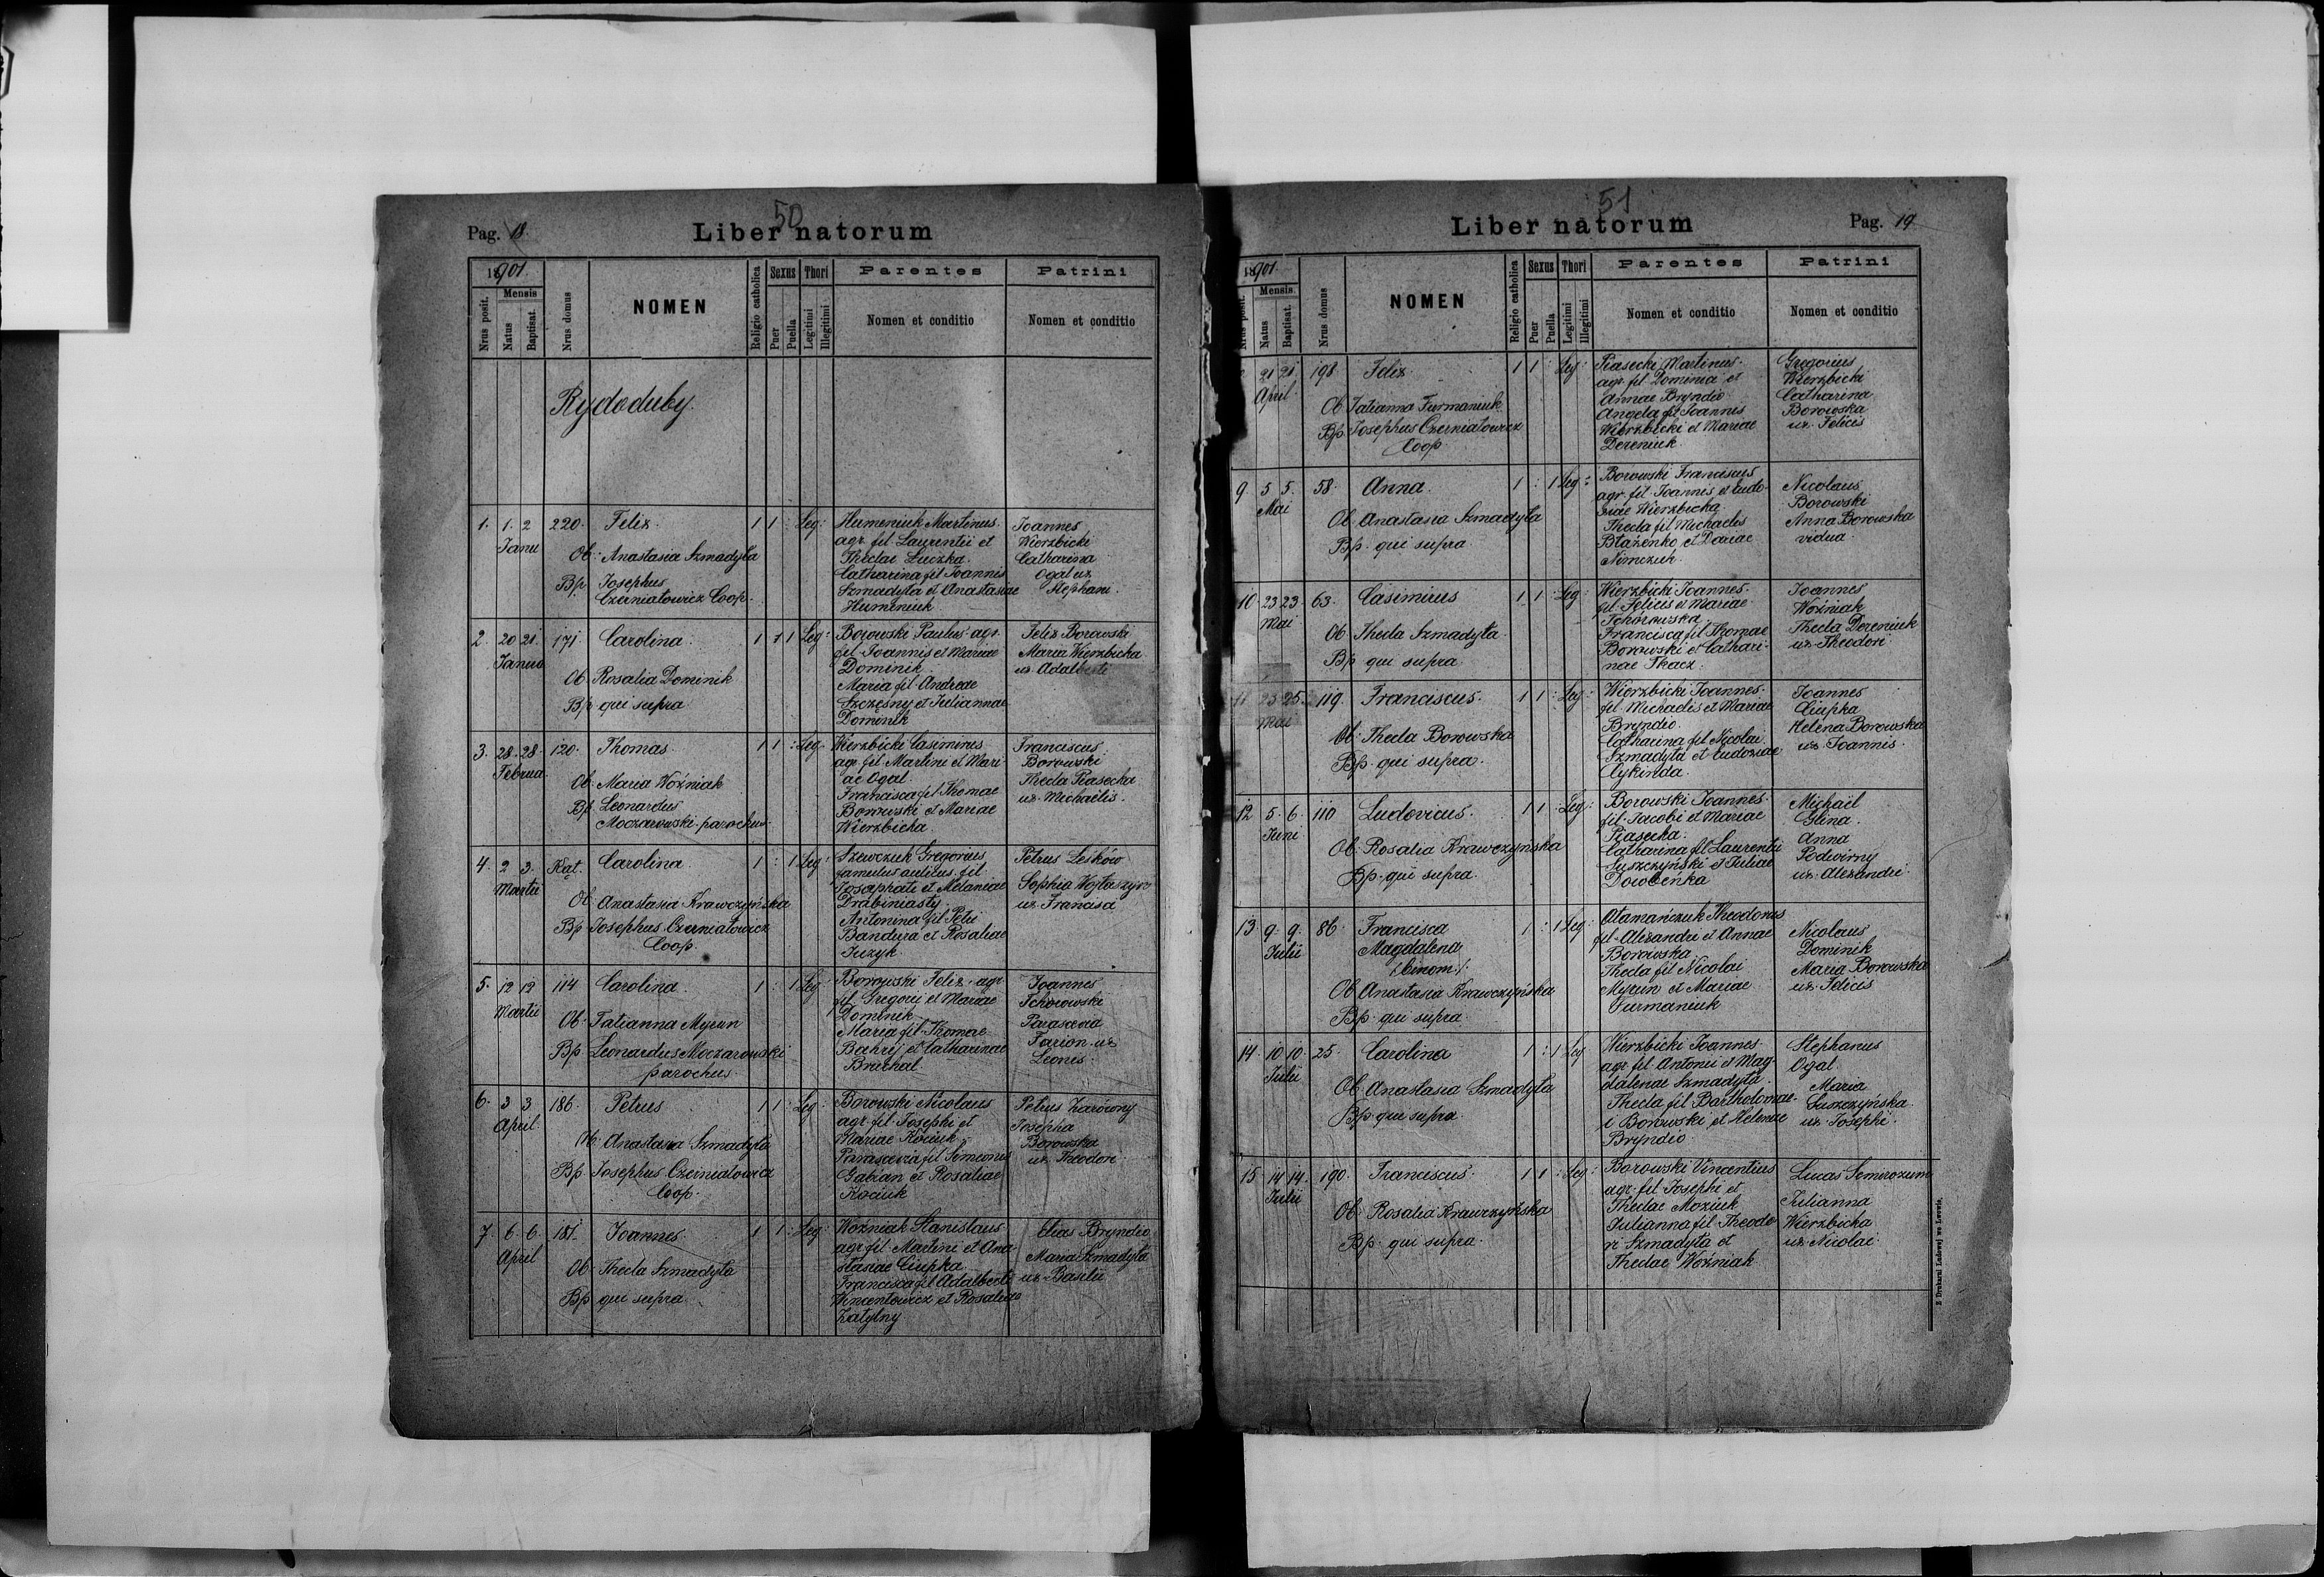 50
Pag. 18.
Liber natorum
1901
Mensis
Nrus posit.
Natus
Baptisat.
Nrus domus
NOMEN
Religio catholica
Sexus
Puer
Puella
Thori
Legitimi
Illegitimi
Parentes
Nomen et conditio
Patrini
Nomen et conditio
Rydoduby.
1. 1. 2 220. Felix. 1 1 : Leg:
Janu
Ob: Anastasia Szmadyła
Bp. Josephus
Czerniatowicz Coop.
Humeniuk Martinus.
agr. fil. Laurentii et
Theclae Luczka.
Catharina fil Joannis
Szmadyła et Anastasiae
Humeniuk
Joannes
Wierzbicki
Catharina
Ogal ux.
Stephani.
2. 20 21. 171. Carolina. 1 1 1 Leg:
Ob. Rosalia Dominik
Bp. qui supra
Borowski Paulus. agr.
fil. Joannis et Mariae
Dominik.
Maria fil. Andreae
Szczęsny et Juliannae
Dominik
Felix Borowski
Maria Wierzbicka
ux. Adalberti
3. 28. 28. 120. Thomas. 1 1 : Leg.
Februa
Ob. Maria Woźniak
Bp. Leonardus
Moczarowski. parochus.
Wierzbicki Casimirus
agr. fil. Martini et Mari
ae Ogal.
Francisca fil Thomae
Borowski et Mariae
Wierzbicka.
Franciscus
Borowski
Thecla Piasecka
ux. Michaëlis.
4. 2 3. Carolina. 1 : 1 Leg:
Martii
Ob. Anastasia Krawczyńska
Bp. Josephus Czerniatowicz
Coop.
Szewczuk Gregorius,
famulus aulicus. fil
Josaphati et Melaniae
Drabiniasty.
Antonina fil Petri
Bandura et Rosaliae
Juzyk.
Petrus Leśków
Sophia Wojtaszyn
ux. Francisci
5. 12 12 114 Carolina. 1 : 1 Leg:
Martii
Ob. Tatianna Myrun
Bp. Leonardus Moczarowski
parochus.
Borowski Felix. agr
fil. Gregorii et Mariae
Dominik
Maria fil. Thomae
Bahrij et Catharinae
Joannes
Tchorowski
Parascevia
Farion ux
Leonis.
6. 3 3 186. Petrus 1 1 : Leg:
April
Ob. Anastasia Szmadyła
Bp. Josephus Czerniatowicz
Coop.
Borowski Nicolaus
agr. fil. Josephi et
Mariae Kociuk
Parascevia fil Simeonis
Gabian et Rosaliae
Kociuk
Josepha
Borowska
ux. Theodori
7. 6. 6. 181. Joannes. 1 1 : Leg:
April
Ob. Thecla Szmadyła
Bp. qui supra
Woźniak Stanislaus
agr. fil. Martini et Ana
stasiae Ciupka
Francisca fil Adalberti
Wincentowicz et Rosaliae
Zatylny
Elias Bryndio
Maria Szmadyła
ux. Basilii
51
Liber natorum
Pag. 19
1901.
Mensis
Nrus posit.
Natus
Baptisat.
Nrus domus
NOMEN
Religio catholica
Sexus
Puer
Puella
Thori
Legitimi
Illegitimi
Parentes
Nomen et conditio
Patrini
Nomen et conditio
21 21 198 Felix. 1 1 : Leg:
April.
Ob. Tatianna Furmaniuk
Bp. Josephus Czerniatowicz
Coop
Piasecki Martinus.
agr. fil Dominici et
Annae Bryndio
Angela fil Joannis
Wierzbicki et Mariae
Dereniuk
Gregorius
Wierzbicki
Catharina
Borowska
ux. Felicis
9. 5 5. 58. Anna. 1 : 1 Leg:
Mai
Ob. Anastasia Szmadyła
Bp. qui supra
Borowski Franciscus
agr. fil. Joannis et Eudo-
xiae Wierzbicka.
Thecla fil Michaelis
Błażenko et Dariae
Nimczuk.
Nicolaus
Borowski
Anna Borowska
vidua.
10. 23 23. 63. Casimirus 1 1 : Leg:
Mai
Ob. Thecla Szmadyła.
Bp. qui supra
Wierzbicki Joannes.
fil. Felicis et Mariae
Tchorowska.
Francisca fil Thomae
Borowski et Cathari-
nae Tkacz.
Joannes
Woźniak
Thecla Dereniuk
ux. Theodori
11 23 25. 119. Franciscus. 1 1 : Leg:
Mai
Ob. Thecla Borowska
Bp. qui supra.
Wierzbicki Joannes.
fil. Michaelis et Mariae
Bryndio.
Catharina fil Nicolai
Szmadyła et Eudoxiae
Cykinda.
Joannes
Ciupka
Helena Borowska
ux. Joannis.
12 5. 6. 110 Ludovicus. 1 1 : Leg:
Juni
Ob. Rosalia Krawczyńska
Bp. qui supra.
Borowski Joannes.
fil. Jacobi et Mariae
Piasecka.
Catharina fil Laurentii
Suszczyński et Juliae
Dowbeńka
Michaël
Glina.
Anna
Podwirny
ux. Alexandri.
13. 9. 9. 86. Francisca 1 : 1 Leg:
Julii
Magdalena
/binom./.
Ob. Anastasia Krawczyńska
Bp. qui supra.
Atamańczuk Theodorus
fil. Alexandri et Annae
Borowska
Thecla fil Nicolai
Myrun et Mariae
Furmaniuk
Nicolaus
Dominik
Maria Borowska
ux. Felicis
14. 10 10. 25. Carolina 1 : 1 Leg
Julii
Ob. Anastasia Szmadyła
Bp. qui supra
Wierzbicki Joannes
agr. fil. Antonii et Mag-
dalenae Szmadyła.
Thecla fil. Bartholomae-
i Borowski et Helenae
Bryndio
Stephanus
Ogal.
Maria
Suszczyńska
ux. Josephi.
15. 14 14. 190. Franciscus. 1 1 : Leg:
Julii
Ob. Rosalia Krawczyńska
Bp. qui supra.
Borowski Vincentius
agr. fil. Josephi et
Theclae Moziuk
Julianna fil. Theodo
ri Szmadyła et
Theclae Woźniak
Lucas Semirozum
Julianna
Wierzbicka
ux. Nicolai.
Z Drukarni Ludowej we Lwowie.